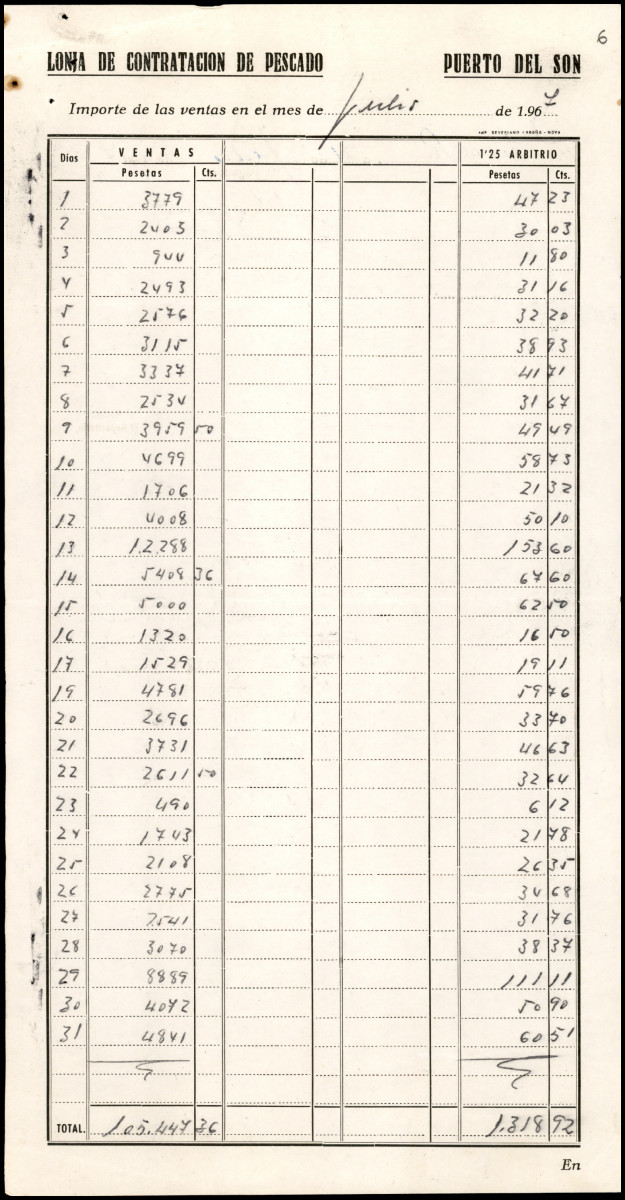 6
LONJA DE CONTRATACION DE PESCADO PUERTO DEL SON
Importe de las ventas en el mes de julio de 1.967
Días VENTAS 1'25 ARBITRIO
Pesetas Cts. Pesetas Cts.
1 3779 47 23
2 2403 30 03
3 944 11 80
4 2493 31 16
5 2576 32 20
6 3115 38 93
7 3337 41 71
8 2534 31 67
9 3959 50 49 49
10 4699 58 73
11 1706 21 32
12 4008 50 10
13 12.288 153 60
14 5408 36 67 60
15 5000 62 50
16 1320 16 50
17 1529 19 11
19 4781 59 76
20 2696 33 70
21 3731 46 63
22 2611 50 32 64
23 490 6 12
24 1743 21 78
25 2108 26 35
26 2775 34 68
27 2541 31 76
28 3070 38 37
29 8889 111 11
30 4072 50 90
31 4841 60 51
TOTAL. 105.447 36 1.318 92
En